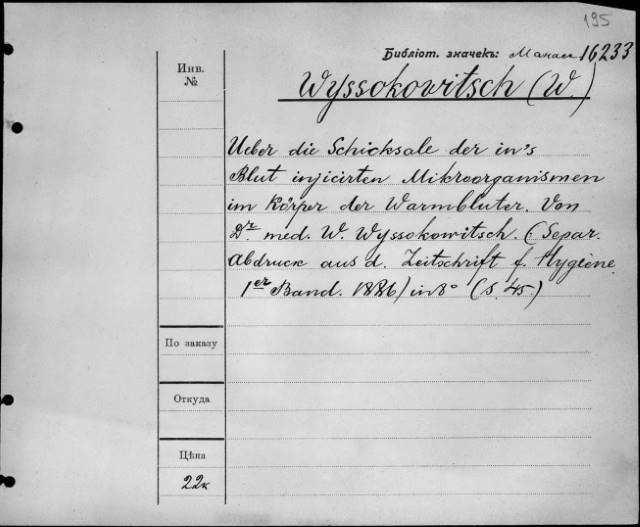 195
Библіот. значекъ: 16233
Инв.
№
Wyssokowitsch (W.)
Ueber die Schicksale der in's
Blut injicirten Mikroorganismen
im Körper der Warmblüter. Von
Dr. med. W. Wyssokowitsch. (Separ.
Abdruck aus d. Zeitschrift f. Hygiene.
1er Band. 1886) in 8° (S. 45.)
По заказу
Откуда
Цѣна
22к